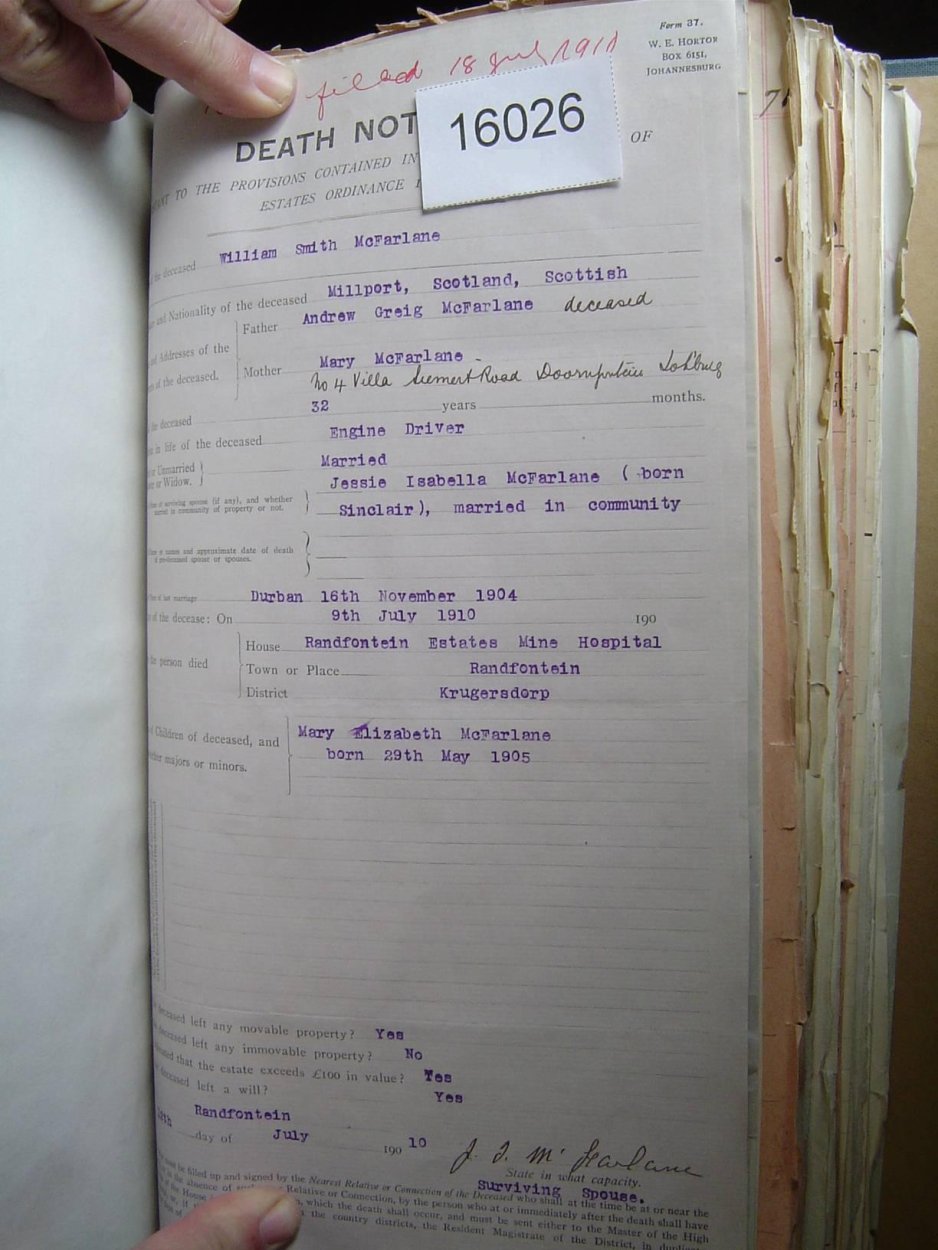 Form 37.
W. E. HORTOR
BOX 6151,
JOHANNESBURG.
filed 18 July 1910
16026
DEATH NOT
OF
TO THE PROVISIONS CONTAINED IN
ESTATES ORDINANCE
deceased William Smith McFarlane
and Nationality of the deceased Millport, Scotland, Scottish
Father Andrew Greig McFarlane deceased
Addresses of the
of the deceased.
Mother Mary McFarlane -
No 4 Villa Siemert Road Doornfontein Joh'burg
deceased 32 years months.
in life of the deceased Engine Driver
or Unmarried
or Widow. Married
of surviving spouse (if any), and whether
married in community of property or not. Jessie Isabella McFarlane ( born
Sinclair), married in community
or names and approximate date of death
of predeceased spouse or spouses.
of last marriage Durban 16th November 1904
of the decease: On 9th July 1910 190
person died
House Randfontein Estates Mine Hospital
Town or Place Randfontein
District Krugersdorp
of Children of deceased, and
majors or minors.
Mary Elizabeth McFarlane
born 29th May 1905
deceased left any movable property? Yes
deceased left any immovable property? No
that the estate exceeds £100 in value? Yes
deceased left a will? Yes
Randfontein
day of July 190 10
J. I. McFarlane
State in what capacity.
Surviving Spouse.
be filled up and signed by the Nearest Relative or Connection of the Deceased who shall at the time be at or near the
the absence of Relative or Connection, by the person who at or immediately after the death shall have
of the House which the death shall occur, and must be sent either to the Master of the High
the country districts, the Resident Magistrate of the District, in